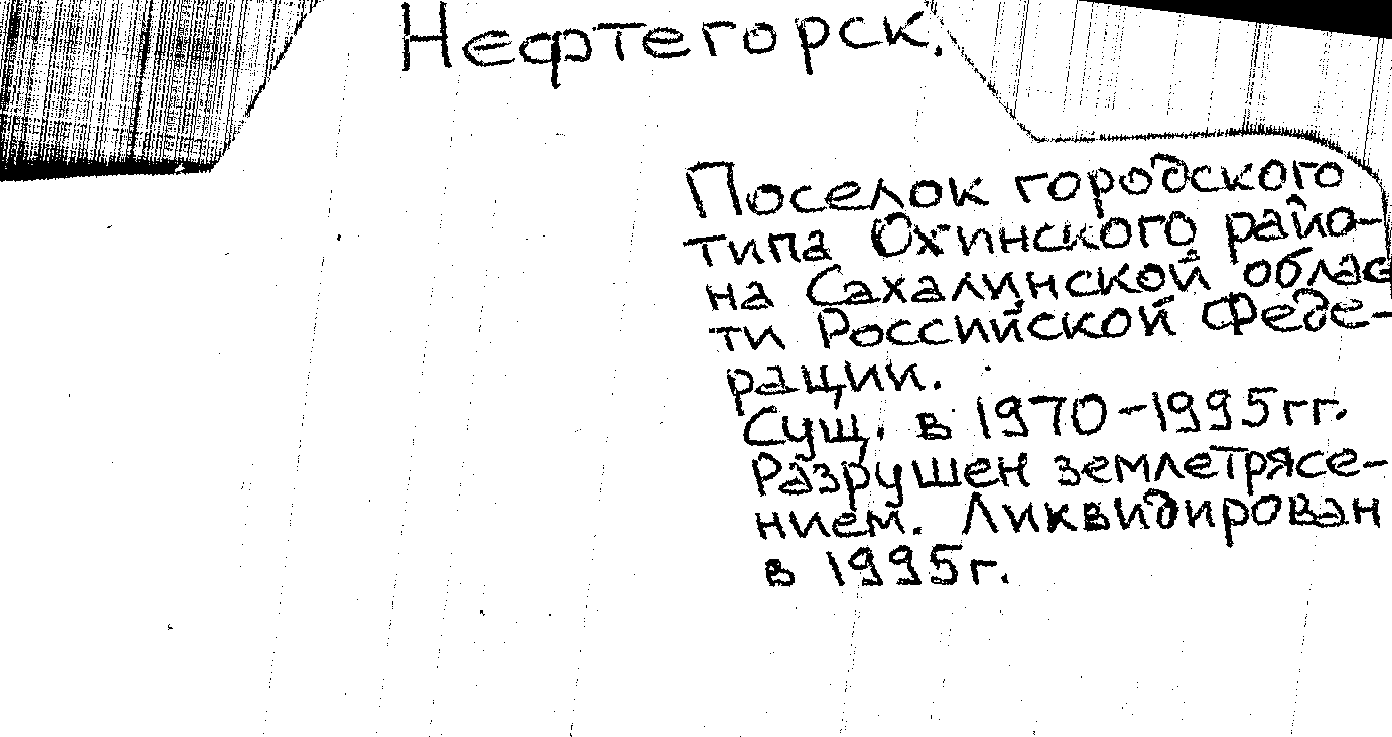 Нефтегорск.
Поселок городского
типа Охинского райо-
на Сахалинской облас
ти Российской Феде-
рации.
Сущ. в 1970-1995гг.
Разрушен землетрясе-
нием. Ликвидирован
в 1995г.